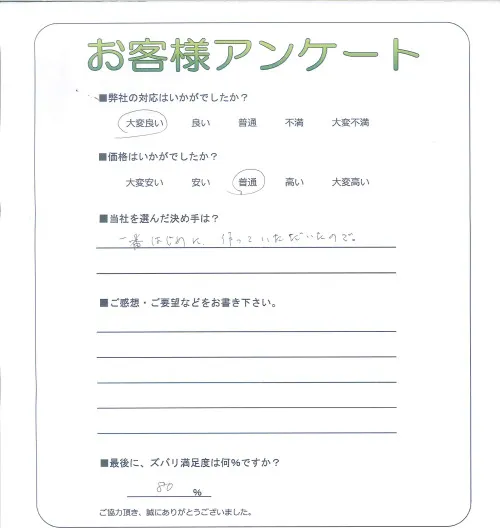 お客様アンケート
■弊社の対応はいかがでしたか?
大変良い 良い 普通 不満 大変不満
■価格はいかがでしたか?
大変安い 安い 普通 高い 大変高い
■当社を選んだ決め手は?
一番はじめに、作っていただいたので。
■ご感想・ご要望などをお書き下さい。
■最後に、ズバリ満足度は何%ですか?
80 %
ご協力頂き、誠にありがとうございました。